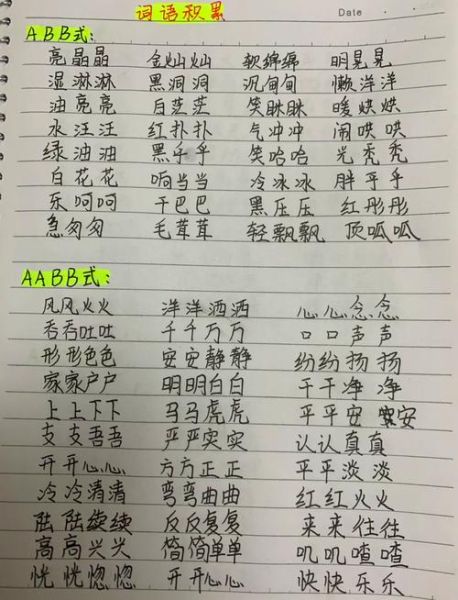 词语积累 Date
ABB式:
亮晶晶 金灿灿 软绵绵 明晃晃
湿淋淋 黑洞洞 沉甸甸 懒洋洋
油亮亮 白茫茫 笑眯眯 暖烘烘
水汪汪 红扑扑 气冲冲 闹哄哄
绿油油 黑乎乎 笑哈哈 光秃秃
白花花 响当当 冷冰冰 胖乎乎
乐呵呵 干巴巴 黑压压 红彤彤
急匆匆 毛茸茸 轻飘飘 顶呱呱
AABB式:
风风火火 洋洋洒洒 心心念念
吞吞吐吐 千千万万 口口声声
形形色色 安安静静 纷纷扬扬
家家户户 明明白白 干干净净
上上下下 马马虎虎 平平安安
支支吾吾 严严实实 认认真真
开开心心 方方正正 平平淡淡
冷冷清清 弯弯曲曲 红红火火
陆陆续续 反反复复 来来往往
高高兴兴 简简单单 叽叽喳喳
恍恍惚惚 开开心心 快快乐乐